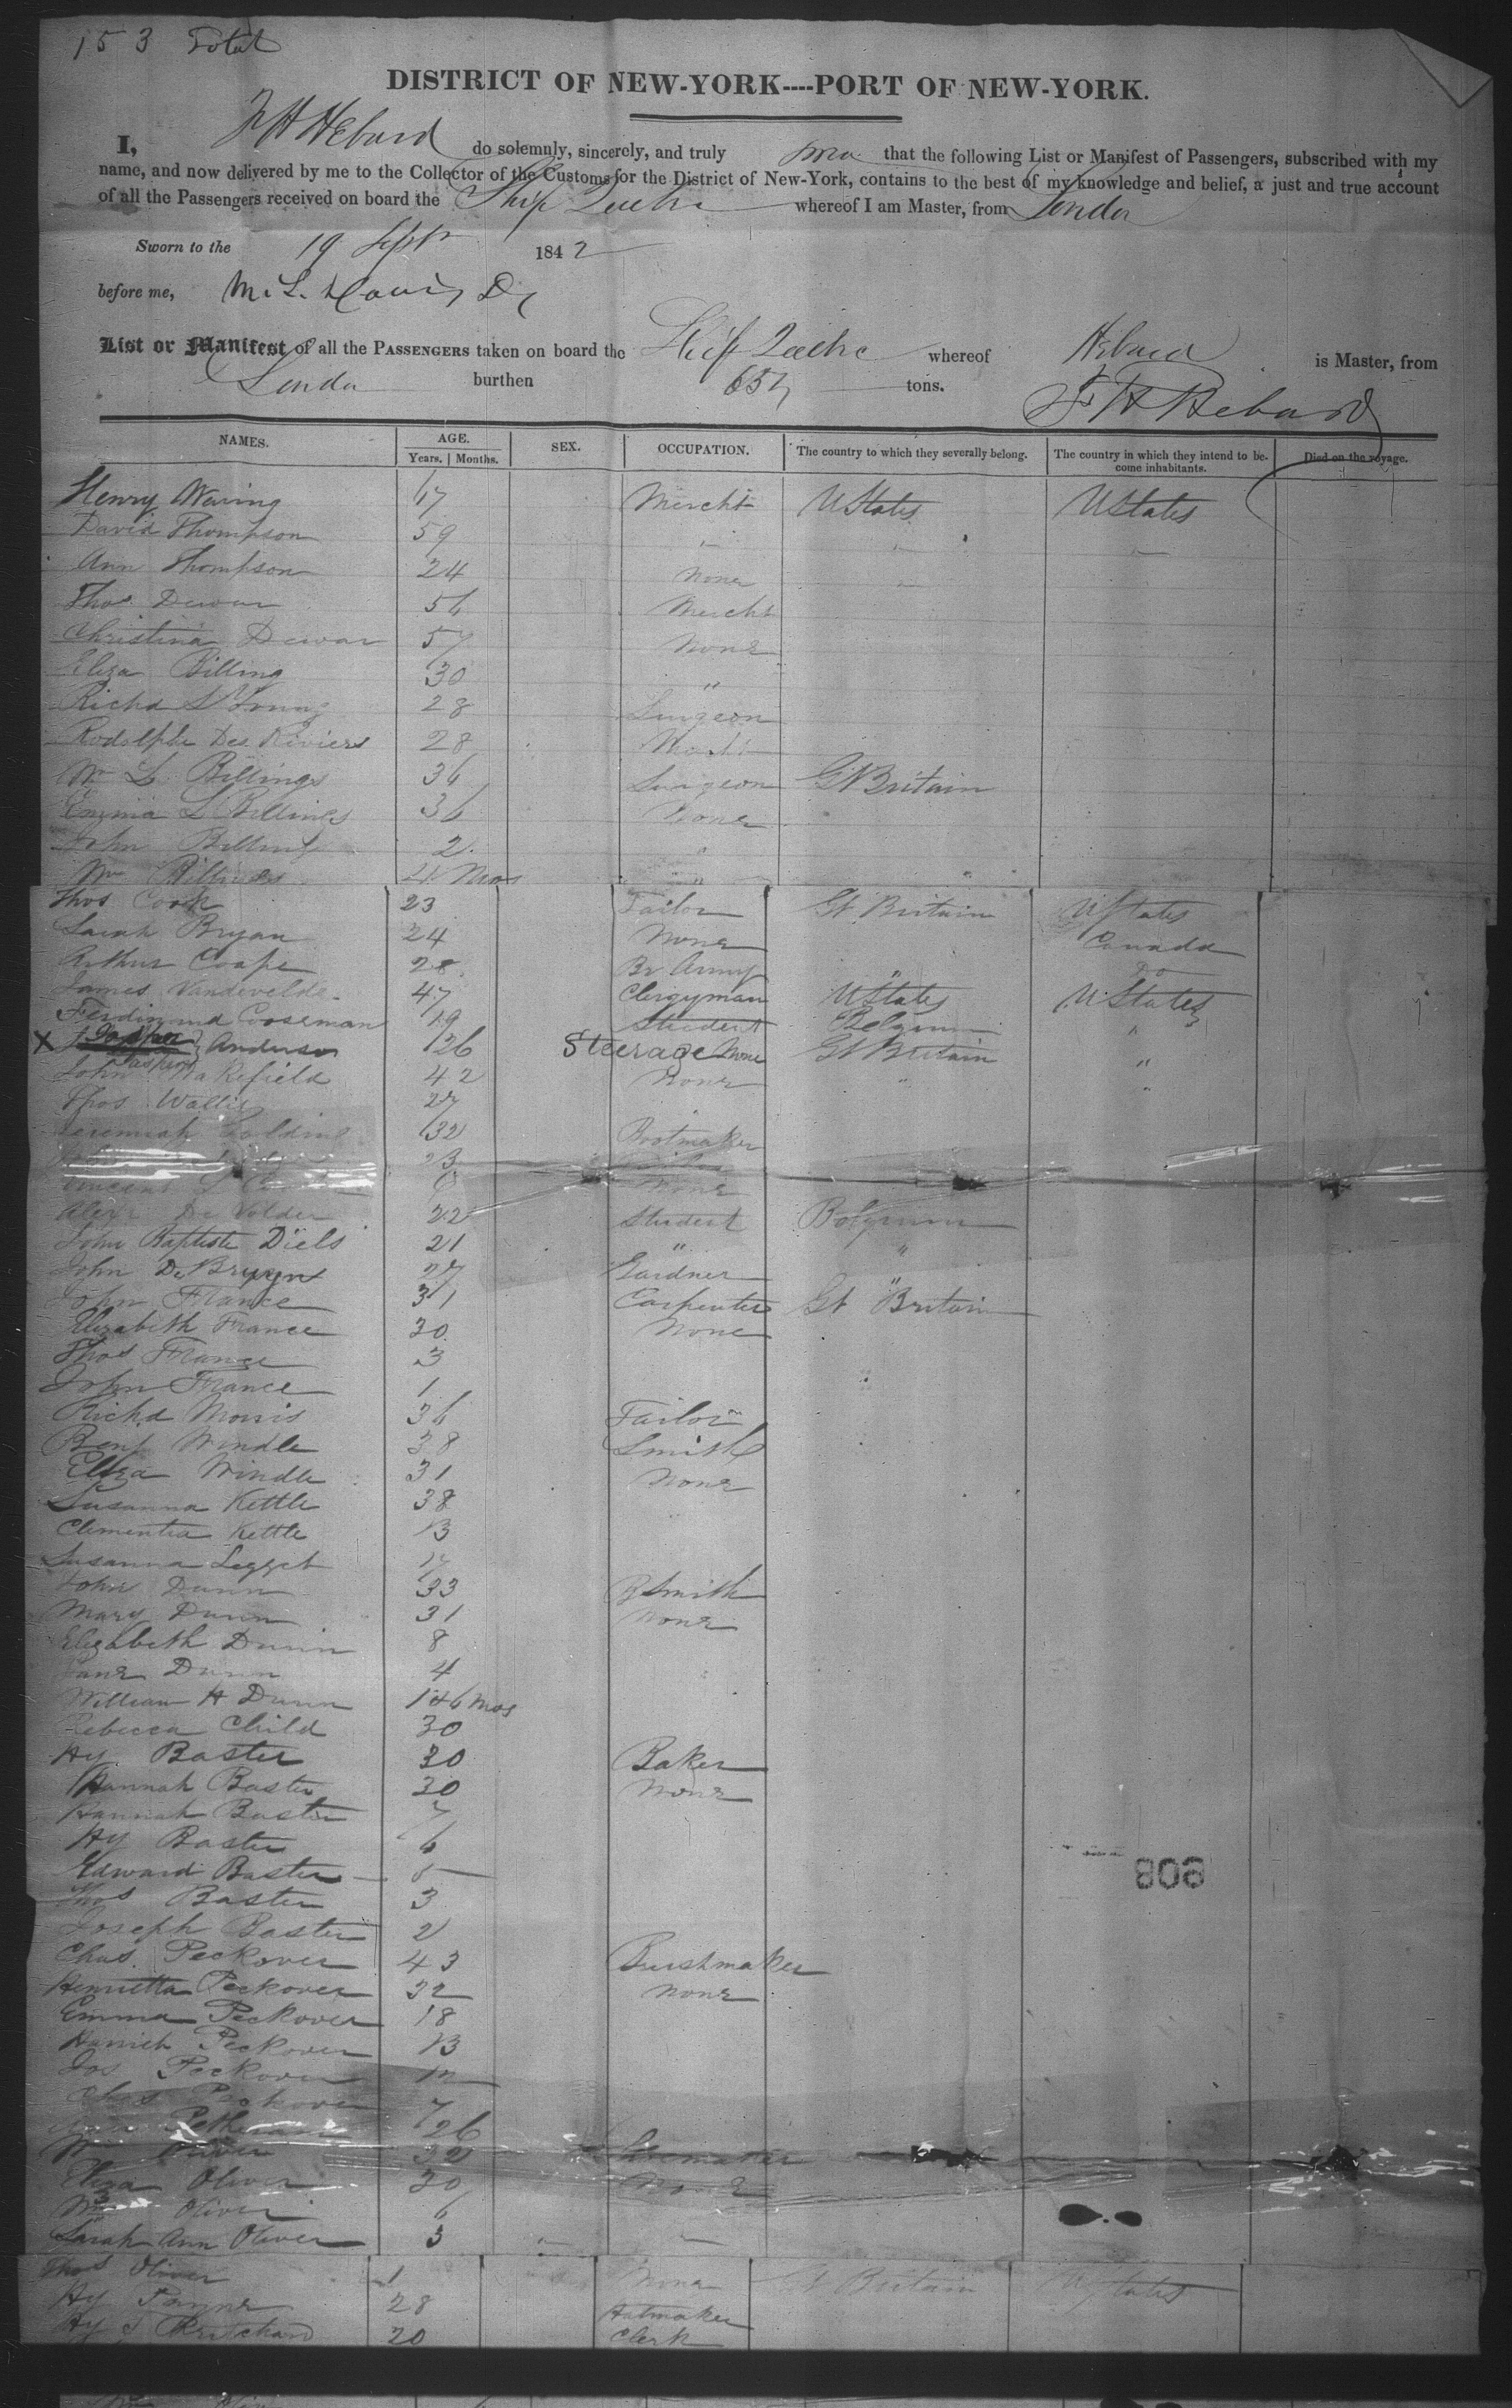 153 Total
DISTRICT OF NEW-YORK----PORT OF NEW-YORK.
I, F H Hebard do solemnly, sincerely, and truly swear that the following List or Manifest of Passengers, subscribed with my
name, and now delivered by me to the Collector of the Customs for the District of New-York, contains to the best of my knowledge and belief, a just and true account
of all the Passengers received on board the Ship whereof I am Master, from London
Sworn to the 19 Septr 1842
before me, M. L. Davis
List or Manifest of all the PASSENGERS taken on board the Ship whereof Hebard is Master, from
London burthen tons. F H Hebard
NAMES. AGE. SEX. OCCUPATION. The country to which they severally belong. The country in which they intend to be- Died on the voyage.
Years. Months. come inhabitants.
Henry Waring 17 Mercht UStates UStates
David Thompson 59 "
Ann Thompson 24 None
Thos Dewar 56 Mercht
Christina Dewar 57 None
Eliza Billing 30 "
Richd S Young 28 Surgeon
Rodolphe Des Riviers 28 Mercht
Wm L Billings 36 Surgeon Gt Britain
Emma L Billings 36 None
John Billings 2 "
Wm Billings 4 Mos "
Thos Cook 23 Tailor Gt Britain UStates
Sarah Bryan 24 None Canada
Arthur Coape 28 Br Army " Do
James Vandevelde 47 Clergyman UStates UStates
Ferdinand Cooseman 19 Student Belgium "
X Jasper Anderson 26 Steerage None Gt Britain "
John Wakefield 42 None " "
Thos Wallis 27
Jeremiah Golding 32 Bootmaker
23
Vincent None
Alexr De Volder 22 Student Belgium
John Baptiste Diels 21 " "
John De Bruyn 27 Gardner "
John France 31 Carpenter Gt Britain
Elizabeth France 30 None
Thos France 3
John France 1
Richd Morris 36 Tailor
Benj Windle 38 Smith
Eliza Windle 31 None
Susanna Kettle 38
Clementia Kettle 13
Susanna Legget 17
John Dunn 33 BSmith
Mary Dunn 31 None
Elizabeth Dunn 8
Jane Dunn 4
William H Dunn 1 & 6 mos
Rebecca Child 30
Hy Baster 30 Baker
Hannah Baster 30 None
Hannah Baster 7
Hy Baster 6
Edward Baster 5
Thos Baster 3
Joseph Baster 2
Chas. Peckover 43 Brushmaker
Henrietta Peckover 32 None
Emma Peckover 18
Harriet Peckover 13
Jos Peckover
Chas Peckover 7
26
Wm Oliver 32
Eliza Oliver 30 None
Wm Oliver 6
Sarah Ann Oliver 3
Thos Oliver 1 None Gt Britain UStates
Hy Payne 28 Hatmaker
Hy J Pritchard 20 Clerk